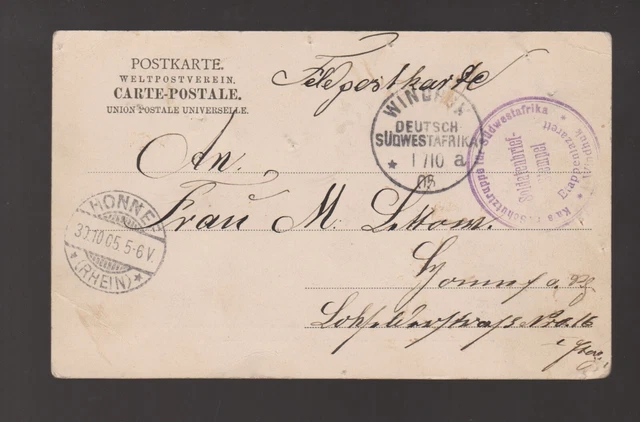 POSTKARTE.
WELTPOSTVEREIN.
CARTE-POSTALE.
UNION POSTALE UNIVERSELLE.
Feldpostkarte
WINDHUK
DEUTSCH-
SÜDWESTAFRIKA
* 1/10 a
05
Kais. Schutztruppe für Südwestafrika
Etappenlazarett
Windhuk
Soldatenbrief-
stempel
An.
Frau M. Lettow.
HONNEF
30.10.05. 5-6 V.
* (RHEIN) *
Honnef a. Rh
No. 16